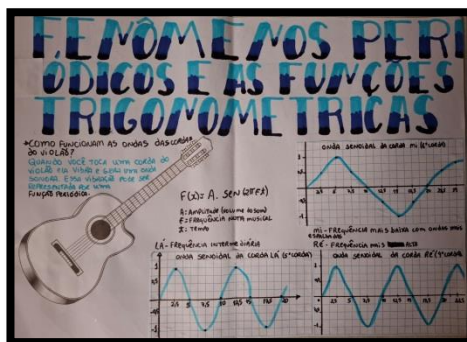 FENÔMENOS PERI
ÓDICOS E AS FUNÇÕES
TRIGONOMETRICAS
COMO FUNCIONAM AS ONDAS DAS CORDAS
DO VIOLÃO?
QUANDO VOCÊ TOCA UMA CORDA DO
VIOLÃO ELA VIBRA E GERA UMA ONDA
SONORA. ESSA VIBRAÇÃO PODE SER
REPRESENTADA POR UMA
FUNÇÃO PERIÓDICA.
F(x)= A. SEN (2πFx)
A: AMPLITUDE (VOLUME DO SOM)
F: FREQUÊNCIA (NOTA MUSICAL)
X: TEMPO
ONDA SENOIDAL DA CORDA MI
MI - FREQUÊNCIA MAIS BAIXA COM ONDAS MAIS
LÁ - FREQUÊNCIA INTERMEDIÁRIA
ONDA SENOIDAL DA CORDA LÁ (5ª CORDA)
RÉ - FREQUÊNCIA MAIS ALTA
ONDA SENOIDAL DA CORDA RÉ (4ª CORDA)